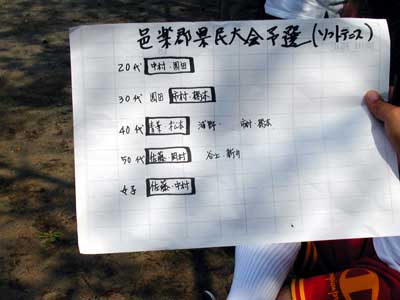 邑楽郡県民大会予選(ソフトテニス)
20代 中村・園田
30代 園田 市村・橋本
40代 松本 浦野・ 市村・橋本
50代 佐藤・岡村 谷上・新井
女子 佐藤・中村